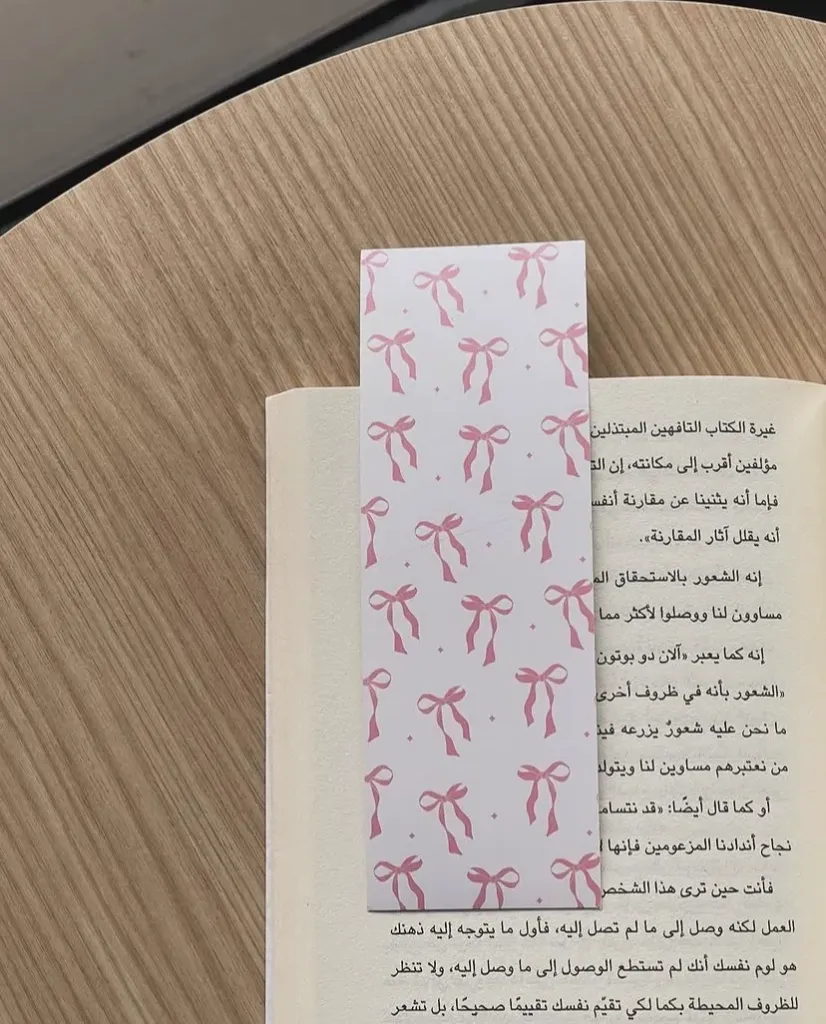 غيرة الكتاب التافهين المبتذلين
مؤلفين أقرب إلى مكانته، إن
فإما أنه يثنينا عن مقارنة
أنه يقلل آثار المقارنة».
إنه الشعور بالاستحقاق
مساوون لنا ووصلوا لأكثر مما
إنه كما يعبر «آلان دو بوتون
«الشعور بأنه في ظروف أخرى
ما نحن عليه شعورٌ يزرعه
من نعتبرهم مساوين لنا
أو كما قال أيضًا: «قد
نجاح أندادنا المزعومين فإنها
فأنت حين ترى هذا الشخص
العمل لكنه وصل إلى ما لم تصل إليه، فأول ما يتوجه إليه ذهنك
هو لوم نفسك أنك لم تستطع الوصول إلى ما وصل إليه، ولا تنظر
للظروف المحيطة بكما لكي تقيّم نفسك تقييمًا صحيحًا، بل تشعر